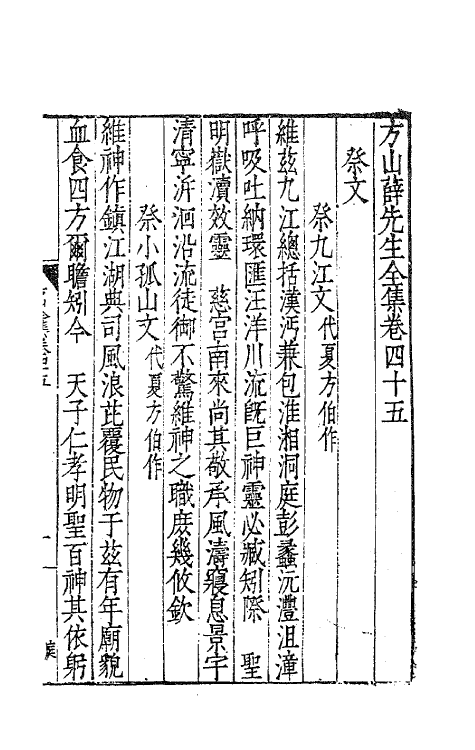 方山薛先生全集卷四十五
祭文
祭九江文代夏方伯作
維茲九江總括漢沔兼包淮湘洞庭彭蠡沅澧沮漳
呼吸吐納環匯汪洋川流旣巨神靈必臧矧際　聖
明嶽瀆效靈　慈宮南來尚其敬承風濤寢息景宇
清寧泝洄沿流徒御不驚維神之職庶幾攸欽
祭小孤山文代夏方伯作
維神作鎮江湖典司風浪芘覆民物于茲有年廟貌
血食四方爾瞻矧今　天子仁孝明聖百神其依躬